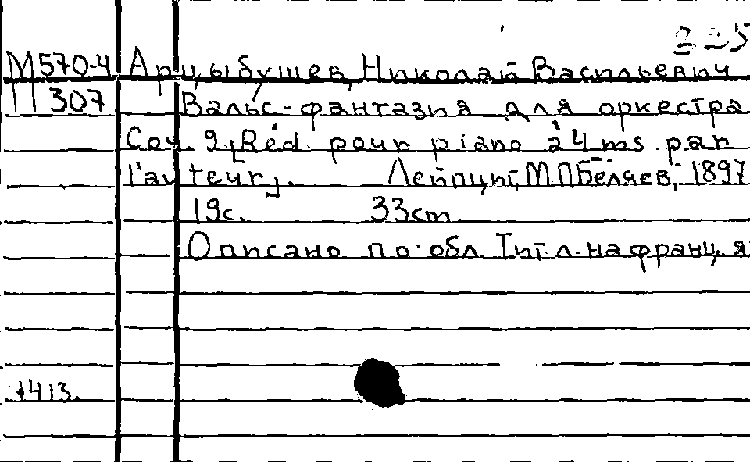 225
М570-4 Арцыбушев, Николай Васильевич
П 307 Вальс-фантазия для оркестра
Соч. 9. [Réd. pour piano à 4 ms. par
l'auteur].  Лейпциг, М.П.Беляев, 1897
19с.  33cm
Описано по обл. Тит. л. на франц. я
1413.